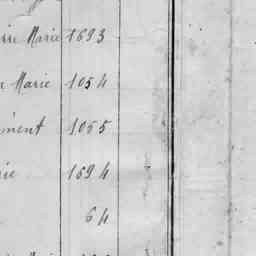 Marie 1693
Marie 1054
ment 1055
rie 1694
64